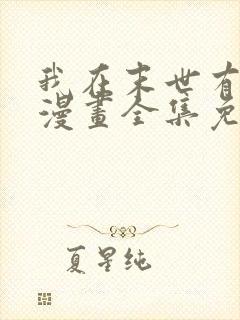 我在末世有
漫畫全集免
夏星纯